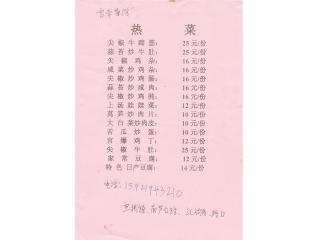 热 菜
尖 椒 牛 蹄 筋: 25 元/份
蒜 苔 炒 牛 肚: 25 元/份
尖 椒 鸡 杂: 16 元/份
咸 菜 炒 鸡 杂: 16 元/份
尖 椒 炒 鸡 肠: 16 元/份
蒜 苔 炒 咸 肉: 16 元/份
尖 椒 炒 鸡 胗: 16 元/份
上 汤 娃 娃 菜: 12 元/份
莴 笋 炒 肉 片: 10 元/份
大 白 菜 炒 肉 皮: 10 元/份
苦 瓜 炒 蛋: 10 元/份
宫 爆 鸡 丁: 12 元/份
尖 椒 牛 肚: 25 元/份
家 常 豆 腐: 12 元/份
特 色 日 产 豆 腐: 14 元/份
电话: 15921943210
路口